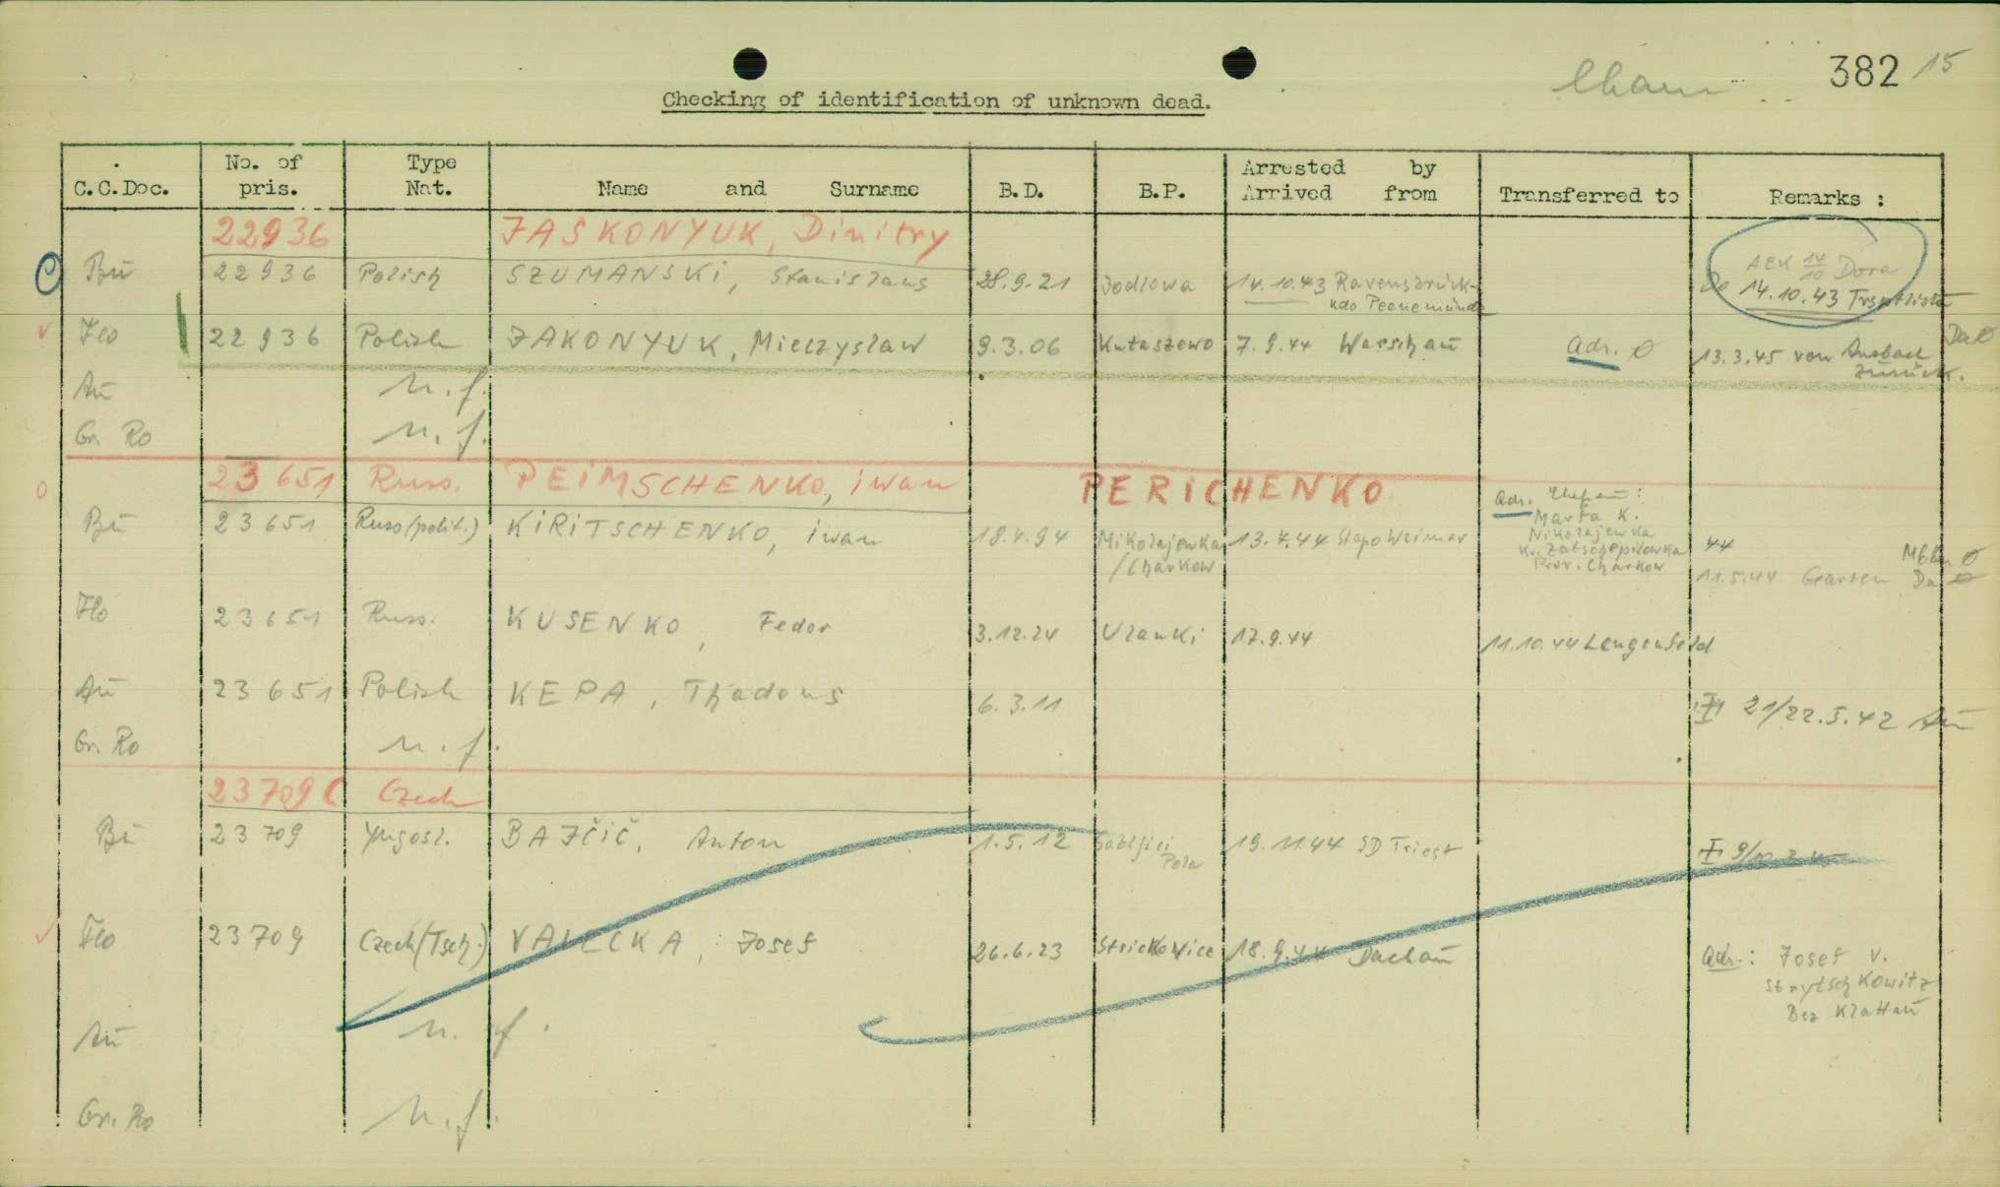 Cham 382 15
Checking of identification of unknown dead.
C.C.Doc. No. of pris. Type Nat. Name and Surname B.D. B.P. Arrested by Arrived from Transferred to Remarks :
22936 JASKONYUK, Dimitry
Bū 22936 Polish SZUMANSKi, Stanislaus 28.9.21 Jodlowa 14.10.43 Ravensbrück- AEK 14/10 Dora
Kdo Peenemünde Do 14.10.43 Trsptliste
Flo 22936 Polish JAKONYUK, Mieczyslaw 9.3.06 Kutaszewo 7.9.44 Warschaū Adr. ∅ 13.3.45 von Ansbach Da∅
zurück.
Aū n.f.
Gr. Ro n.f.
23651 Russ. PEiMSCHENKO, iwan PERICHENKO
Adr. Ehefraū:
Bū 23651 Russ(polit.) KiRiTSCHENKO, iwan 18.4.94 Mikolajowka 13.4.44 Stapo Weimar Marfa K.
/Charkow Nikolajewka 44
Kr. Zatschepilowka
Prov. Charkow 11.5.44 Da∅
Flo 23651 Russ. KUSENKO, Fedor 3.12.24 Ulanki 17.9.44 11.10.44 Lengenfeld
Aū 23651 Polish KEPA, Thadous 6.3.11 21/22.5.42 Aū
Gr. Ro n.f.
23709 C Czech
Bū 23709 Yugosl. BAJČiČ, Anton 1.5.12 19.11.44 SD Triest
Pola
Flo 23709 Czech(Tsch.) VALECKA, Josef 26.6.23 Strickowice 18.9.44 Dachaū Adr.: Josef V.
Strytschkowitz
Bez Klattaū
Aū n.f.
Gr. Ro n.f.